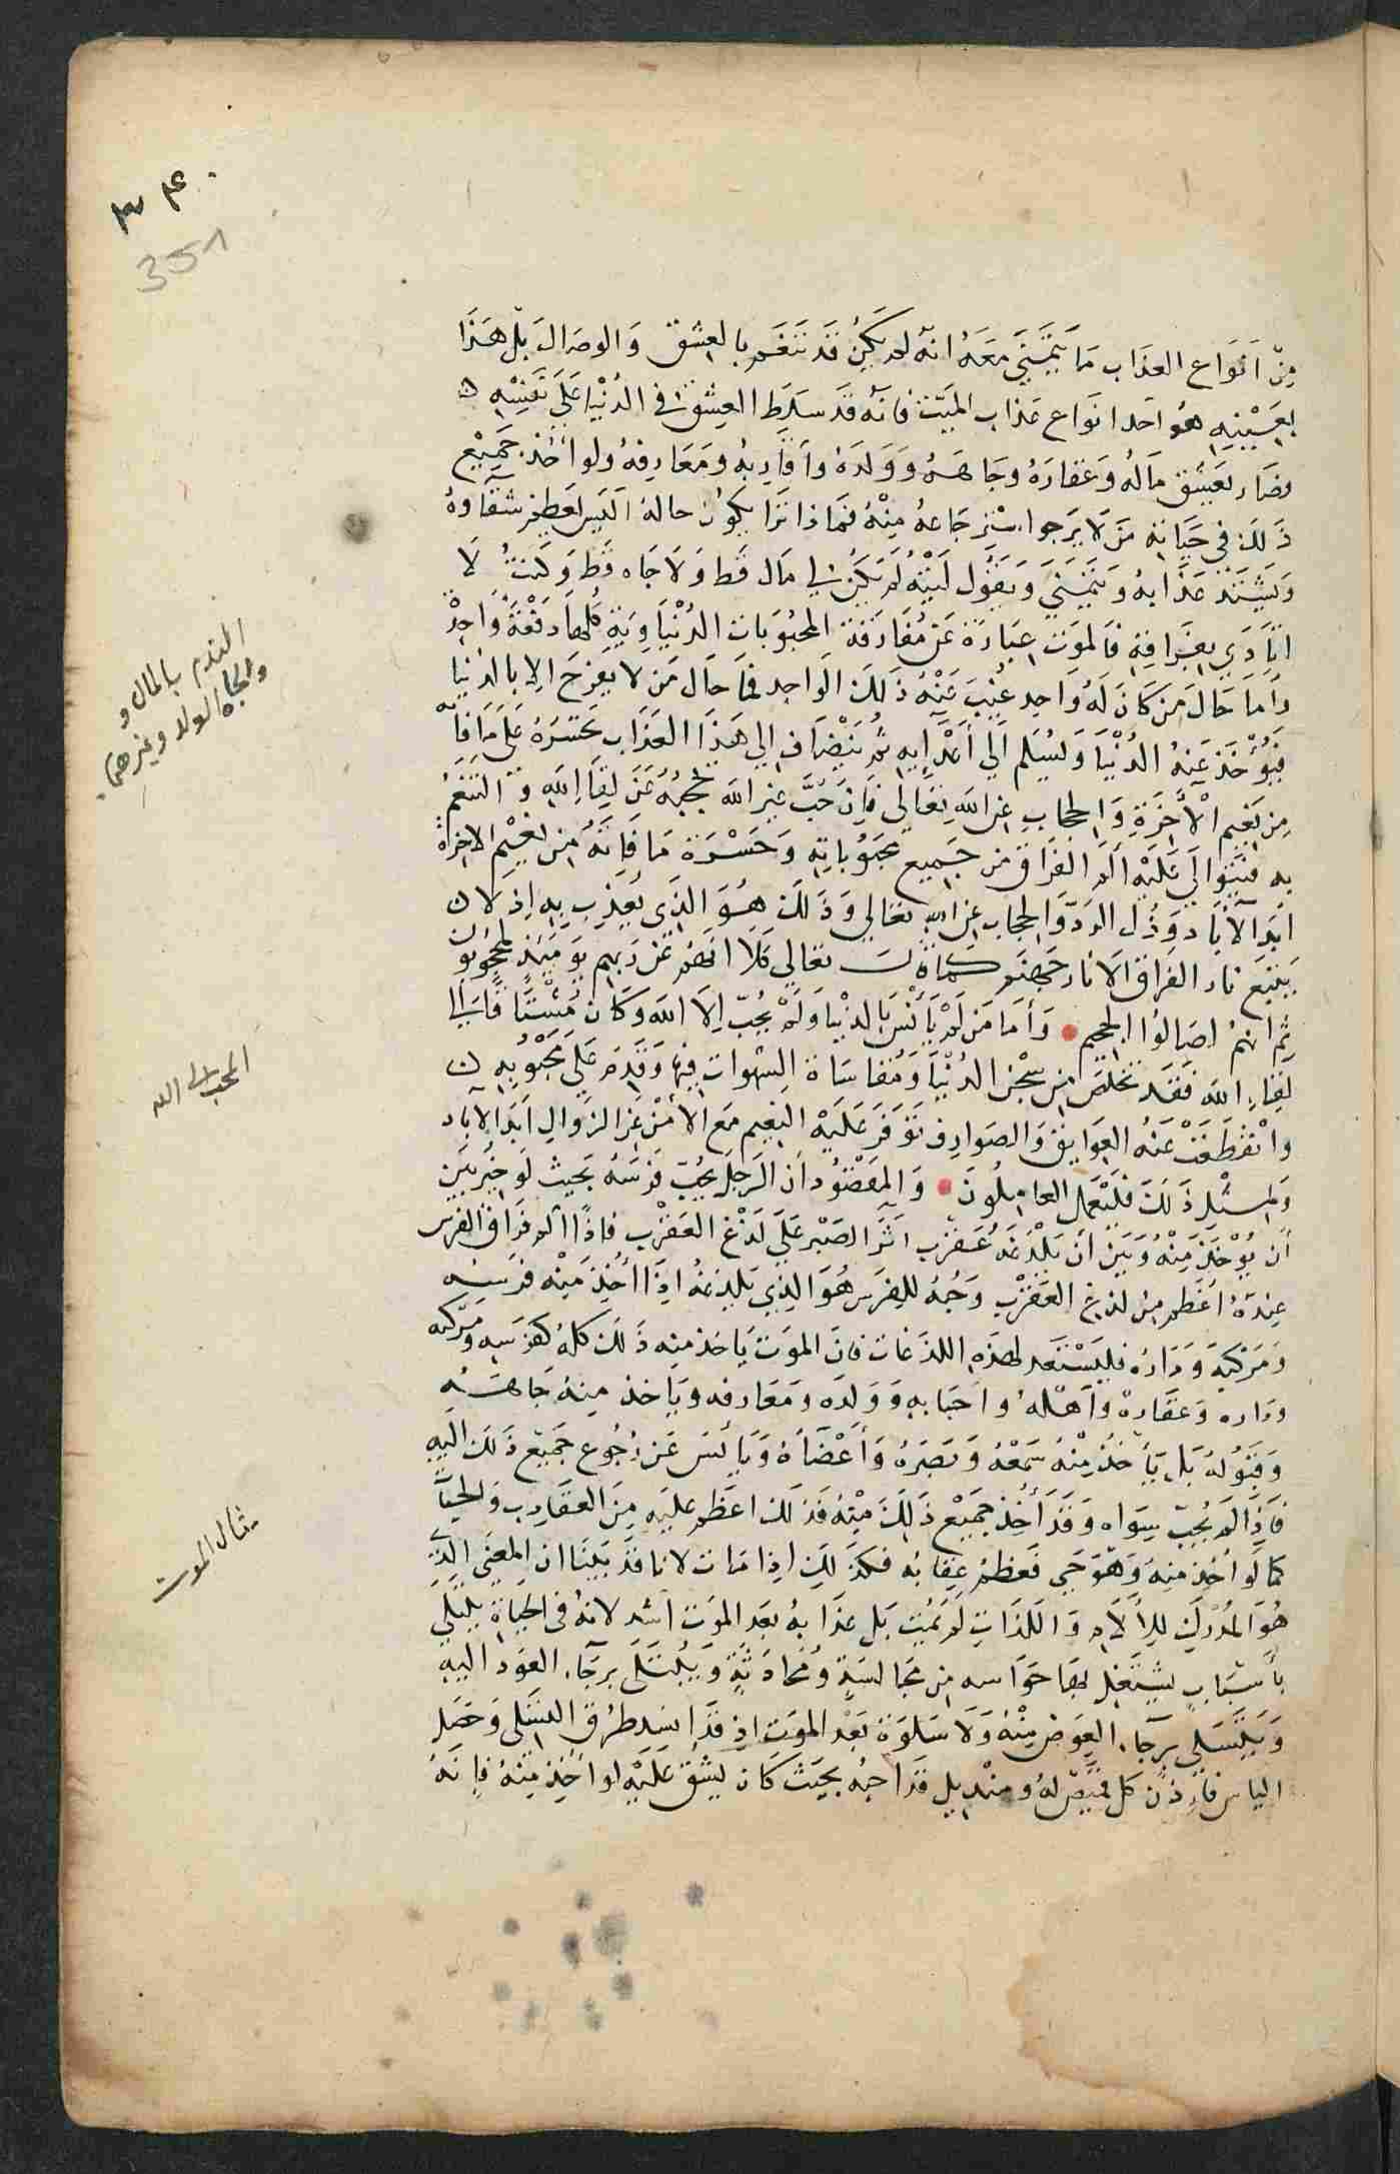 ٣٤٠
351
مِنْ اَنْوَاعِ العَذَابِ مَا يَتَمَنَّى مَعَهُ انهُ لم يَكُنْ قَد تَنَعَّمَ بالعِشْقِ وَالوصَال بَلْ هَذَا
بِعَيْنِهِ هُو احَد انوَاع عَذاب الميّت فانهُ قد سَلَّطَ العِشْقَ في الدُنْيا عَلى نَفْسِهِ
فصَار يَعشَق مَالهُ وَعَقارَهُ وجَاهَهُ وَوَلدَهُ وأقاربهُ ومَعَارفهُ ولو أُخذ جَمِيْع
ذَلك في حَيَاته مَن لَا يَرجوا اسْتِرجَاعهُ مِنْهُ فمَاذا تَرَا يكُون حالهُ اَلَيسَ يَعظم شقاوهُ
وَيَشتَدّ عَذَابهُ وَيَتَمَنَّى وَيَقُول لَيْتهُ لَمْ يَكُن لي مَال قط وَلَا جَاه قَطّ وَكنتُ لَا
اتأذى بفِرَاقِهِ فَالموَت عِبَارَة عَن مُفَارَقَة المحبُوبَات الدُنْيَاوِيَّةِ كُلهَا دَفْعَةً وَاحِدَة
وَأمَا حَال مَن كَانَ لَهُ وَاحِد غُيّبَ عَنْهُ ذَلكَ الوَاحِد فَمَا حَال مَن لا يَفرَح الا بالدنيَا
فَتُؤْخَذ عَنهُ الدُنْيَا وَيُسَلم الَى أعْدَائِهِ ثم يَنْضَاف الى هَذَا العَذَاب تحَسّرهُ عَلَى مَا فَاتهُ
مِن نَعِيم الْآخِرَةِ وَالحِجَابِ عن اللهِ تعَالى فَاِنَّ حُبَّ غير الله يَحجبهُ عَن لِقَاء اللهِ وَالتنَعّم
بهِ فتَتَوَالى عَلَيْهِ ألَم الفرَاق من جَمِيع محبُوبَاتِهِ وَحَسْرَة مَا فَاتهُ مِن نَعِيْمِ الاخِرَة
ابَد الآبَاد وَذُلّ الردّ وَالحِجَاب عن الله تعَالى وَذَلكَ هُوَ الذِي يُعَذَّب بِهِ اِذ لَا
يَتبَع نار الفرَاق اِلَّا نَار جَهَنم كمَا قالَ تعَالى كلَا انهُم عَن رَبهم يَومَئذٍ لمحجُوبُون
ثمّ انهمُ لصَالُوا الجحِيم • وَأمَا مَن لَمْ يَأنَسْ بالدنْيَا وَلَمْ يُحبّ اِلَّا الله وَكَان مُشْتَاقًا الى
لقاءِ الله فَقَد تخلصَ مِن سِجْن الدُنْيَا وَمُقَاسَاة الشهوَات فِيها وَقَدِم عَلى مَحْبُوبهِ
وَانْقَطَعَتْ عَنْهُ العَوَايق وَالصَوارِف وتَوَفرَ عَلَيْهِ النعِيم مَع الأَمْن عَن الزوَال ابَدَ الآباد
وَلِمِثْلِ ذَلكَ فَلْيَعْمَل العَامِلُون • وَالمقصُودُ أن الرَجلَ يُحِبّ فَرسَهُ بحيث لَو خُيّر بَيْن
أن يُؤخَذ مِنْهُ وَبَيْن أن يَلْدَغهُ عَقرَب آثَر الصَبْر عَلى لَدْغ العَقْرب فاذًا الم فرَاق الفرس
عِندَهُ أعْظم مِن لدغ العَقْرَب وَحُبّهُ للفرَس هُوَ الذِي يَلدغهُ اِذَا أُخِذَ مِنْه فَرسهُ
وَمَركبهُ وَدَارهُ فليَسْتَعد لهَذِهِ اللدَغات فانَ الموَت يَاخذ مِنه ذَلك كلهُ كفرَسه وَمَركبه
وَدَاره وَعَقاره وَأهْلهُ واحبَابهِ وَوَلده وَمَعَارفه وَيَاخذ مِنهُ جَاهَهُ
وَقبُولهُ بَل يَأخُذ مِنْهُ سَمْعَهُ وَبَصَرَهُ وَأعْضَاهُ وَيَائس عَن رُجُوع جَمِيْع ذَلك اليهِ
فاذَا لَم يُحِبّ سِوَاه وَقد أُخِذ جمِيْع ذَلكَ مِنْهُ فذلك اعظم عليهِ مِن العقَارب وَالحيّات
كما لَو اُخِذ منه وَهُوَ حَي فَعظمُ عِقابُه فكذَلك اِذا مَات لانا قد بَيَّنا ان المعنَى الذِّي
هُوَ المُدْرِك لِلألَام وَاللذَات لم يَمُت بَل عَذَابهُ بَعد الموَت اشد لانهُ في الحيَاة يتَسَلّى
بأسْبَابٍ يشتغِل بهَا حَوَاسه مِن مجَالسَةٍ وَمُحادَثةٍ وَيتسَلّى برجَاء العَود اليهِ
وَيتسَلى برجَاء العِوَض مِنْهُ وَلَا سَلوَة بَعْد الموَت اِذ قد اِنسَدّ طرُق التسَلى وَحصَل
الياس فاذن كل قميصٍ لهُ ومنْدِيل قَد احبهُ بحَيْث كَان يشق عَليْهِ لو اُخذ مِنْهُ فاِنهُ
التنعم بالمال و
والجاه الولد وغيرهما
المحب الى الله
مثال الموت